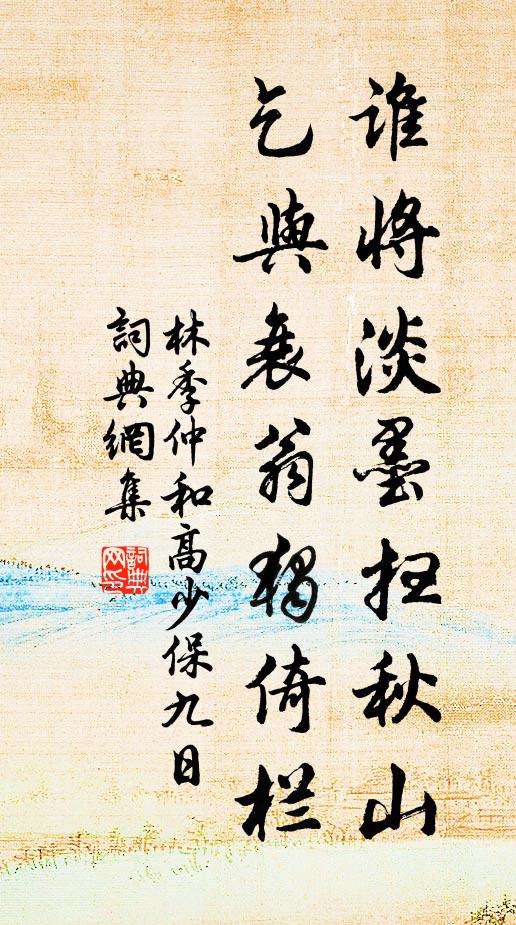 谁将淡墨扫秋山
乞與衰翁独倚栏
林季仲和高少保九日
詞典網集
詞典网印